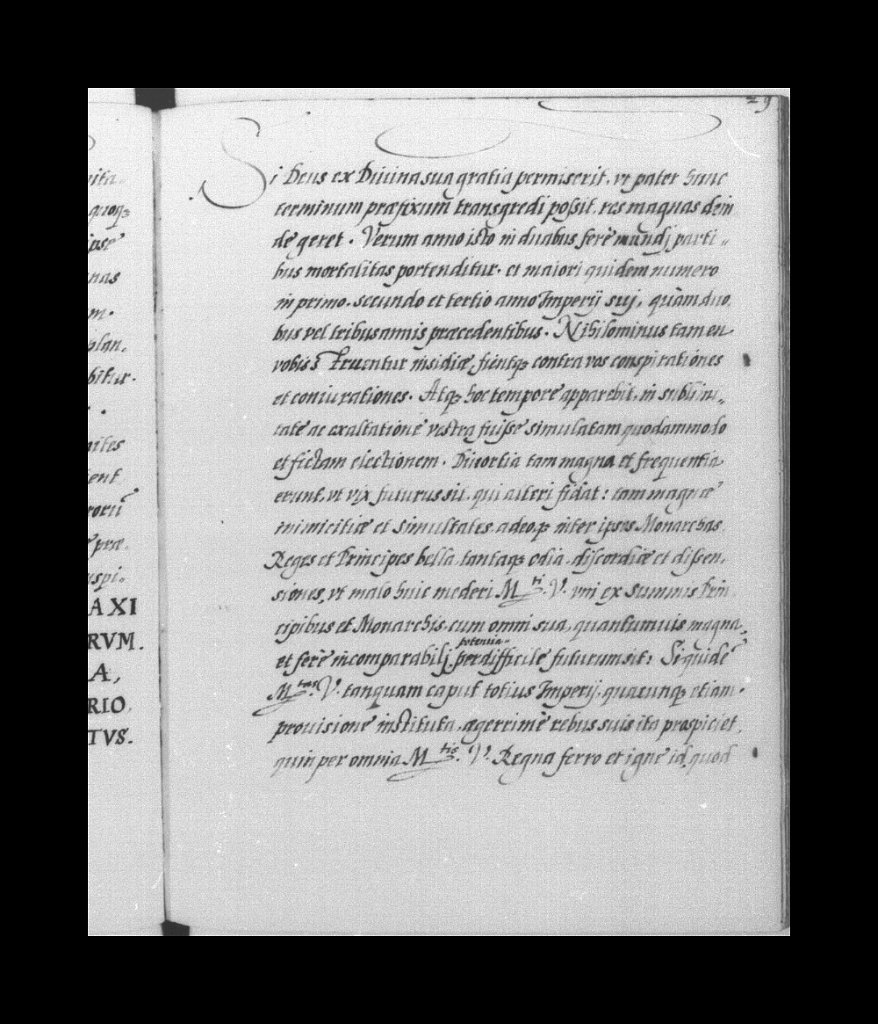 29
Si Deus ex Diuina sua gratia permiserit, vt pater hunc
terminum præfixum transgredi possit, res magnas dein
de geret. Verum anno isto in duabus ferè mundj parti=
bus mortalitas portenditur, et maiori quidem numero
in primo, secundo et tertio anno Imperij suj, quàm duo,
bus vel tribus annis præcedentibus. Nihilominus tamen
vobis struentur insidiæ, fiuntq3 contra vos conspirationes
et coniurationes. Atq3 hoc tempore apparebit, in sublimi=
tate ac exaltatione vestra fuisse simulatam quodammodo
et fictam electionem. Diuortia tam magna et frequentia
erunt, vt vix futurus sit, qui alteri fidat: tam magnæ
inimicitiæ et simultates, adeoq3 inter ipsos Monarchas
Reges et Principes bella, tantaq3 odia, discordiæ et dissen,
siones, vt malo huic mederi M.ti V. vni ex summis Prin
cipibus et Monarchis, cum omni sua, quantumuis magna,
potentia
et ferè incomparabilj, perdifficile futurum sit: Siquidē
M.tas V. tanquam caput totius Imperij, quacunq3 etiam
prouisione instituta, ægerrimè rebus suis ita prospiciet,
quin per omnia M.tis V. Regna ferro et igne id, quod
uita=
quoq3
ipse
nas
m.
plan,
bitur.
mites
tent
rorū
præ=
uspi=
AXI
RVM.
A,
RIO,
TVS.